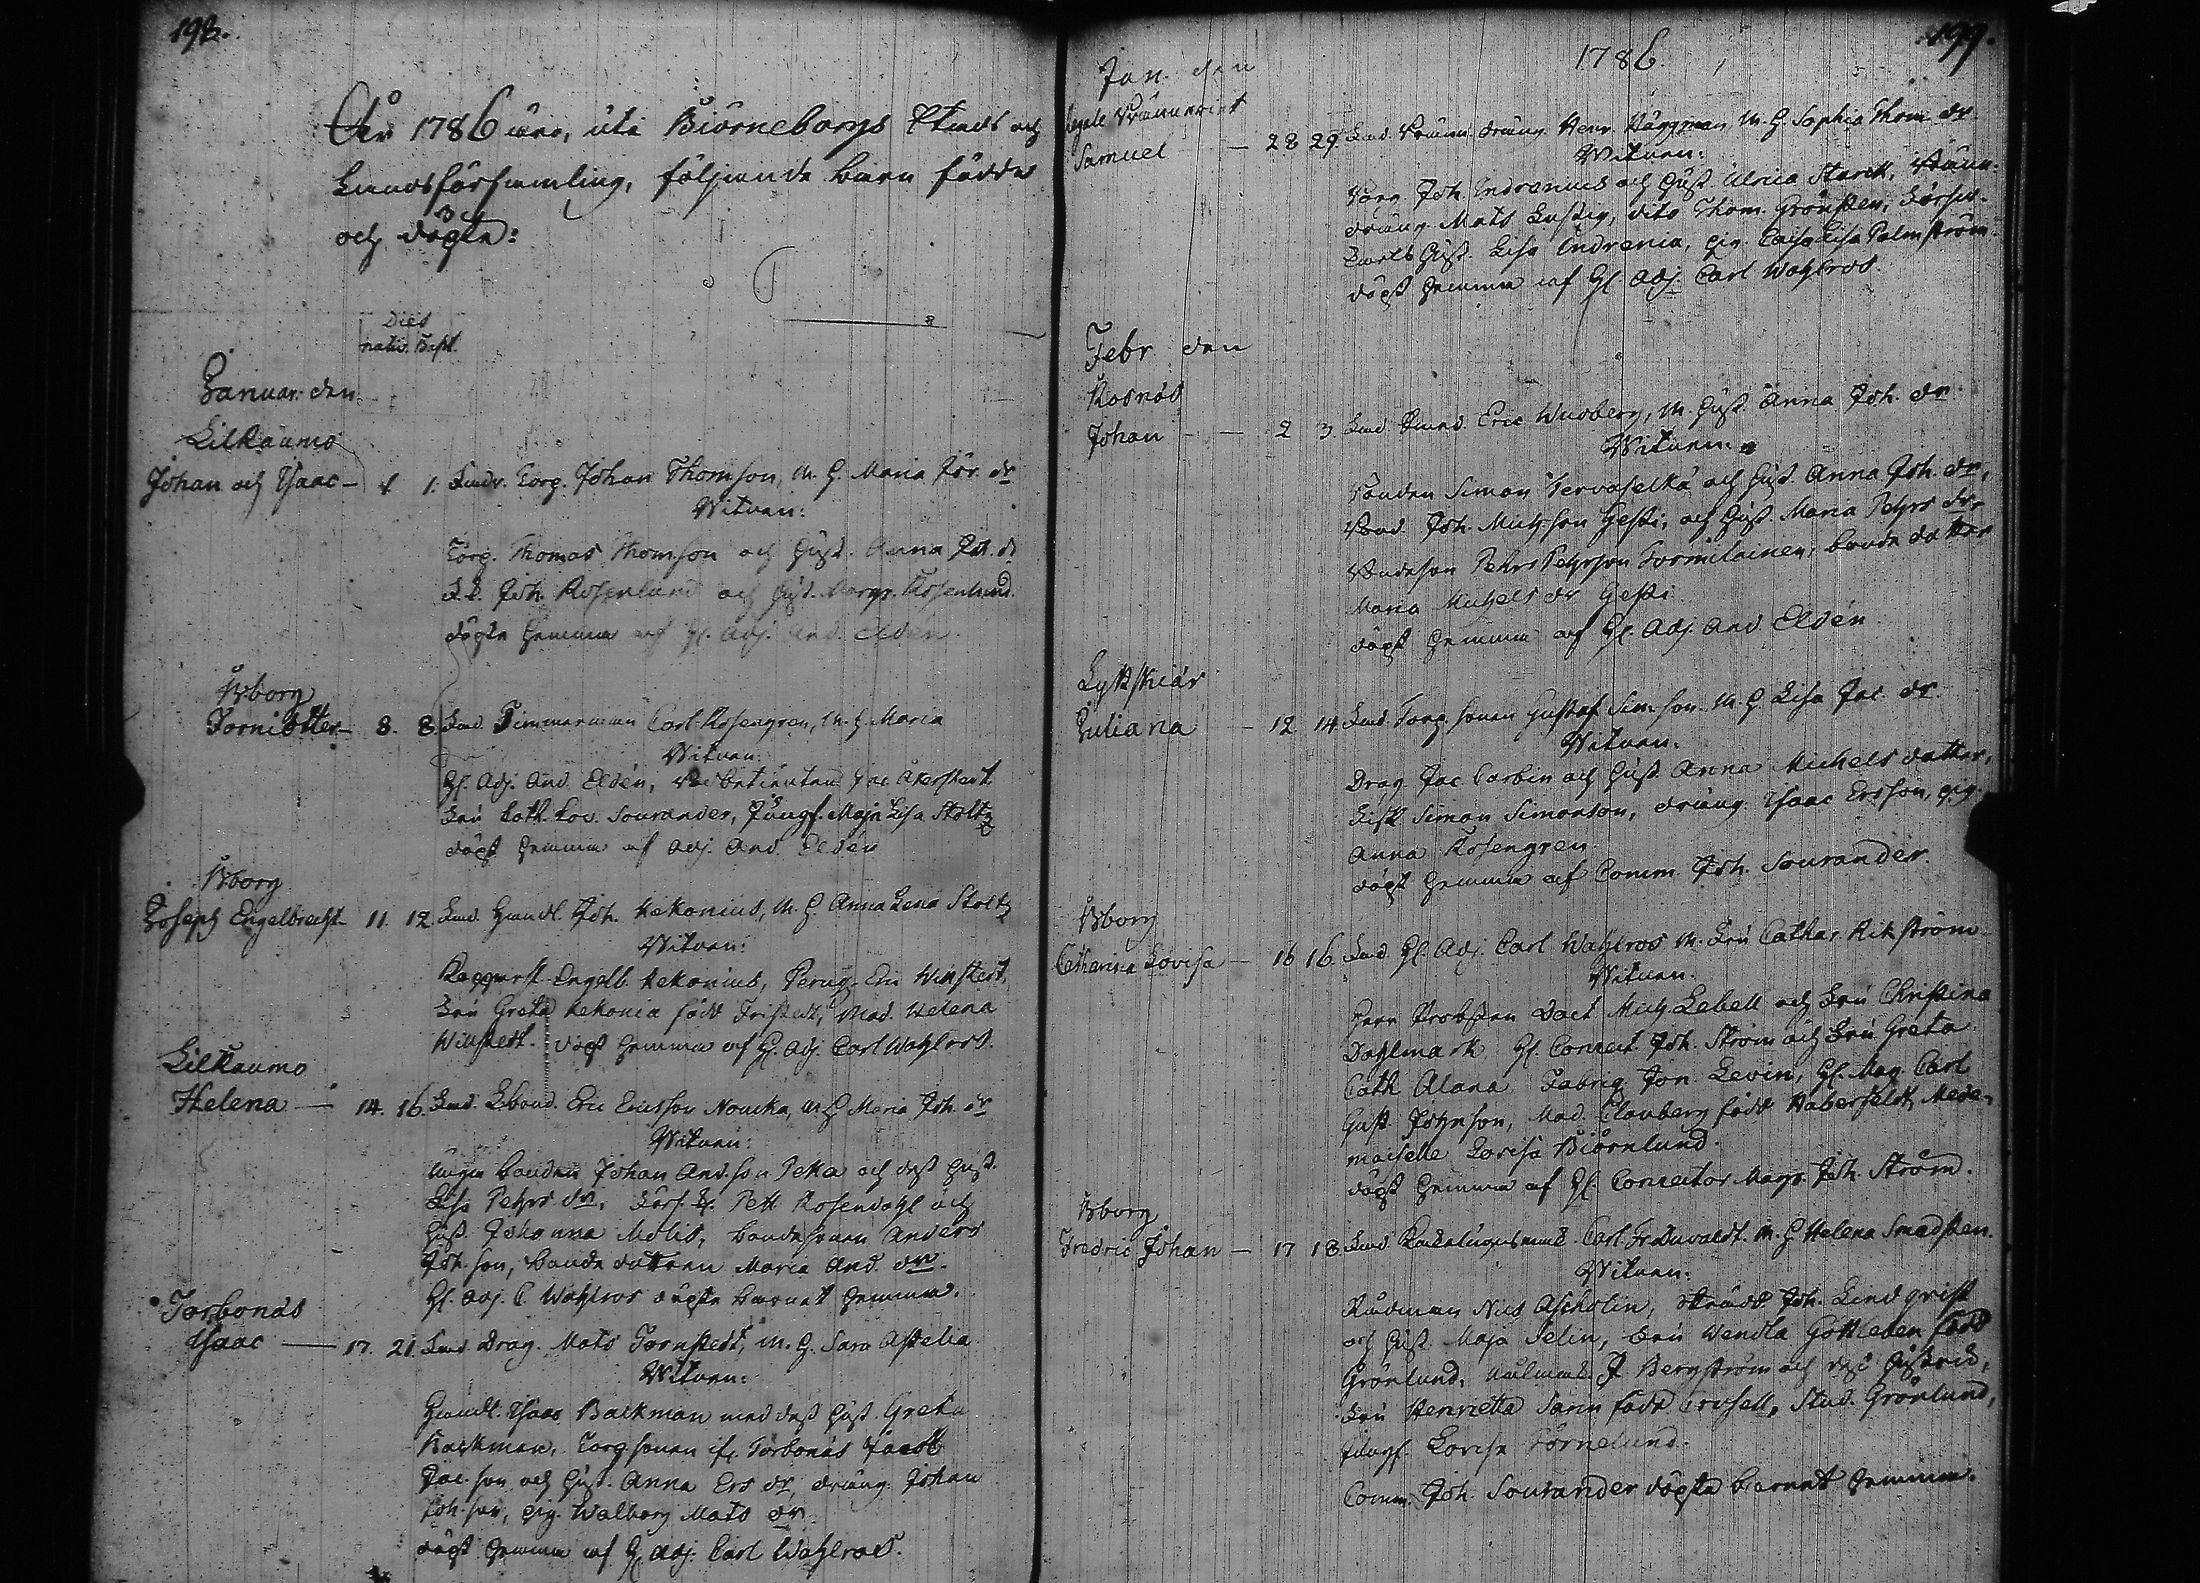 198.
År 1786 äro, uti Biörneborgs Stads och
Landsförsamling, följande barn födde
och döpte:
Dies
nativ. Bapt.
Januar. den
Lilraumo
Johan och Isaac - 1. 1. Torp. Johan Thomson, M. H. Maria Jör. dr
Witnen:
Torp. Thomas Thomson och Hust. Anna Joh. dr
Joh. Rosenlund och Hust. Margr. Rosenlund.
döpte hemma af H. Adj. And. Eldén.
Bborg
8. 8. Timmerman Carl Rosengren, M. H. Maria
Witnen:
H. Adj. And. Eldén, Jac Åkerstant
Fru Cath. Lov. Sourander, Jungf. Maja Lisa Stoltz
döpt hemma af Adj. And. Eldén
Bborg
Joseph Engelbrecht - 11. 12. Handl. Joh. Kekonius, M. H. Anna Lena Stoltz
Witnen:
Engelb. Kekonius, Winstedt,
Fru Greta Kekonia född Fristedt, Mad. Helena
Winstedt. döpt hemma af H. Adj. Carl Wahlros.
Lilraumo
Helena - 14. 16. Eric Ericsson Noucka, M. H. Maria Joh. dr
Witnen:
bonden Johan And.son Petka och dess Hust.
Lisa Pehrs dr, Pett Rosendahl och
Hust. Johanna Molis, bondesonen Anders
Joh. son, bonde dottren Maria And. dr.
H. Adj. C. Wahlros döpte barnet hemma.
Torbonäs
Isaac - 17. 21. Drag. Mats Tornstedt, M. H. Sara Astelia
Witnen:
Handl. Isaac Backman med dess Hust. Greta
Backman, Torp sonen if. Torbonäs Jacob
Jac. son och Hust. Anna Ers dr, dräng Johan
Joh. son, pig. Walborg Mats dr.
döpt hemma af H. Adj. Carl Wahlros.
199.
1786.
Jan. den
Samuel - 28 29. dräng Henr. Häggman, M. H. Sophia Thom. dr.
Witnen:
Joh. Indrenius och Hust. Ulrica Starck,
dräng Mats Lustig, dito Thom. Grönsten,
Hust. Lisa Indrenia, pig. Caisa Lisa Palmström.
döpt hemma af H. Adj. Carl Wahlros.
Febr den
Rosnäs
Johan - 2 3. Eric Widberg, M. Hust. Anna Joh. dr.
Witnen:
bonden Simon Tervaselkä och Hust. Anna Joh. dr,
Bond. Joh. Michson Hesti, och Hust. Maria Pehrs dr
bondeson Pehrson Tormilainen, bonde dotter
Maria Michels dr Hesti.
döpt hemma af H. Adj. And. Eldén
Lyttskiär
Juliana - 12 14. Torp. sonen Gustaf Simson M. H. Lisa Jac. dr.
Witnen:
Drag. Jac Corbin och Hust. Anna Michels dotter,
Simon Simonson, dräng Isaac Ersson, pig.
Anna Rosengren.
döpt hemma af Comm. Joh. Sourander.
Bborg
Catharina Lovisa - 16 16. H. Adj. Carl Wahlros M. Fru Cathar. Rikström
Witnen.
Herr Probsten Doct. Mich. Lebell och Fru Christina
Dahlmark, H. Conrect. Joh. Ström och Fru Greta
Cath Alana Fabriq. Jon. Levin, H. Mag. Carl
Gust. Johnson, Mad. Clauberg född Haberfeldt, Made-
moiselle Lovisa Biörnlund.
döpt hemma af H. Conrector Magr. Joh. Ström.
Bborg
Fredric Johan - 17 18. Carl Fr. Duvaldt. M. H. Helena Smedsten.
Witnen:
Rådman Nils Aschelin, Joh. Lindqvist
och Hust. Maja Selin, Fru Wendla Gottleben född
Grönlund, J. Bergström och dess
Fru Henrietta Sarin född Crusell, Stud. Grönlund,
Jungf. Lovisa Törnelund.
Comm. Joh. Sourander döpte barnet hemma.